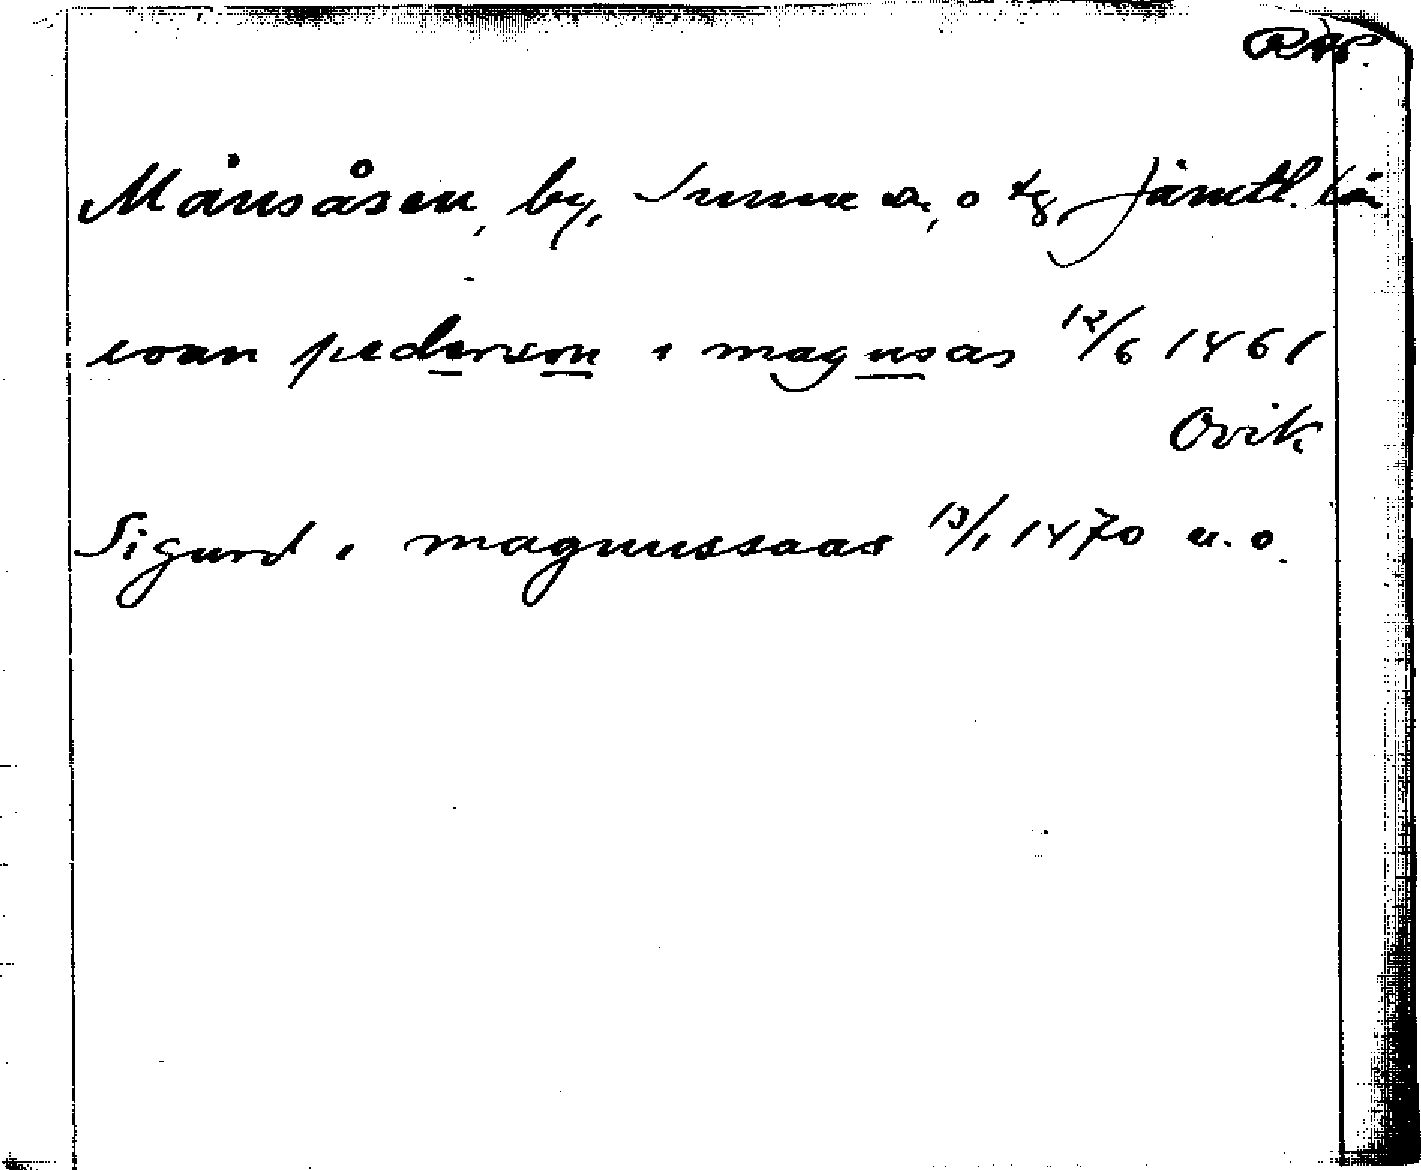 RAP.
Månsåsen, by, Sunne sn, o tg, Jämtl. län
evan pederson i magnsas 12/6 1461
Ovik
Sigurd i magnussaas 13/1 1470 u. o.